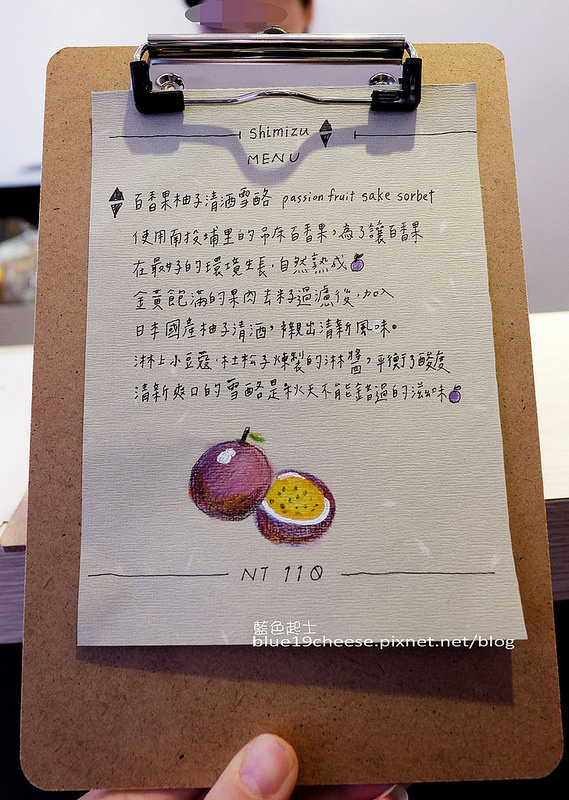 Shimizu
MENU
百香果柚子清酒雪酪 passion fruit sake sorbet
使用南投埔里的吊床百香果，為了讓百香果
在最好的環境生長，自然熟成
金黃飽滿的果肉去籽過濾後，加入
日本國產柚子清酒，襯出清新風味。
淋上小豆蔻、杜松子煉製的淋醬，平衡了酸度
清新爽口的雪酪是秋天不能錯過的滋味
NT 110
藍色起士
blue19cheese.pixnet.net/blog